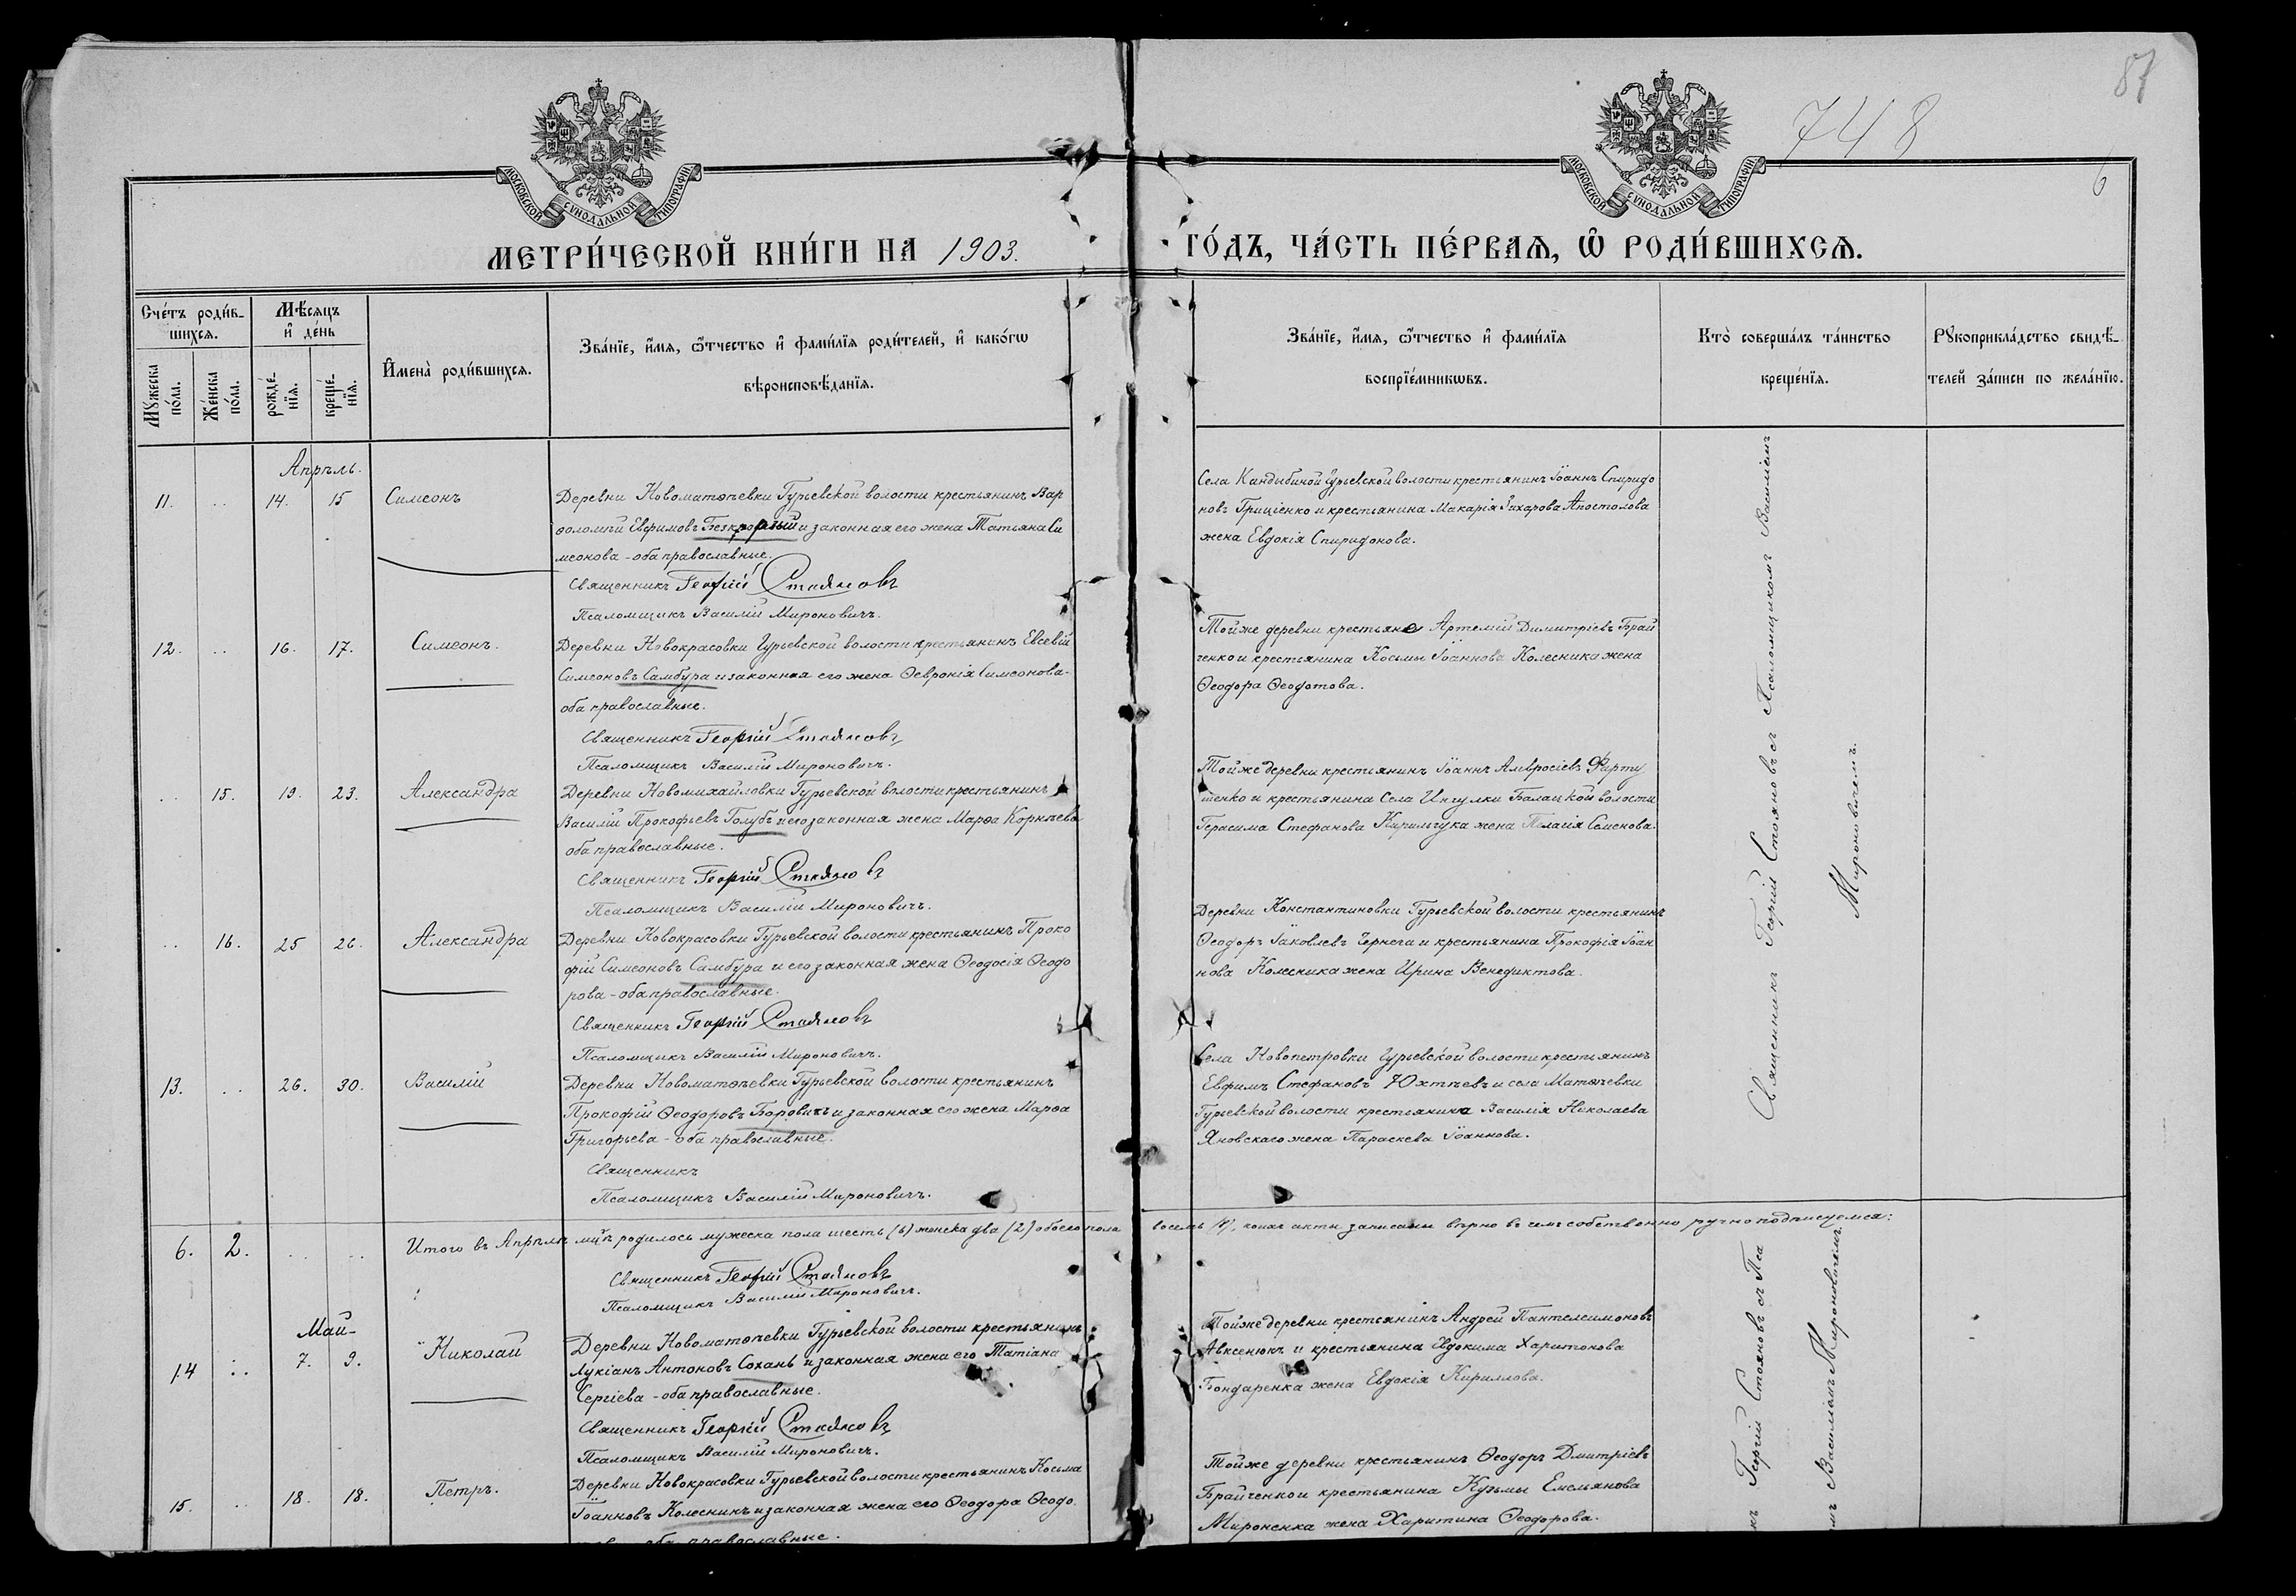 87
748
6
МОСКОВСКОЙ СѴНОДАЛЬНОЙ ТИПОГРАФІИ
МОСКОВСКОЙ СѴНОДАЛЬНОЙ ТИПОГРАФІИ
МЕТРИ́ЧЕСКОЙ КНИ́ГИ НА 1903. ГО́ДЪ, ЧА́СТЬ ПЕ́РВАѦ, Ѡ҆ РОДИ́ВШИХСѦ.
Сче́тъ роди́в-
шихсѧ.
Мꙋжеска по́ла.
Же́нска по́ла.
Мѣ́сѧцъ и҆ де́нь
рожде́-нїѧ.
креще́-нїѧ.
И҆мена̀ роди́вшихсѧ.
Зва́нїе, и҆́мѧ, ѻ҆́тчество и҆ фамн́лїѧ роди́телей, и҆ како́гѡ
вѣроисповѣ́данїѧ.
Зва́нїе, и҆́мѧ, ѻ҆́тчество и҆ фами́лїѧ
воспрїе́мникѡвъ.
Кто̀ соверша́лъ та́инство
креще́нїѧ.
Рꙋкоприкла́дство свидѣ́-
телей за́писи по жела́нїю.
Апрѣль.
11. .. 14. 15 Симеонъ
Деревни Новоматвѣевки Гурьевской волости крестьянинъ Вар
ѳоломѣй Евфимовъ и законная его жена Татьяна Си
меонова - оба православные.
Священникъ Георгій Стояновъ
Псаломщикъ Василій Мироновичъ.
Села Кандыбиной Гурьевской волости крестьянинъ Іоаннъ Спиридо
новъ Гриценко и крестьянина Макарія Захарова Апостолова
жена Евдокія Спиридонова.
12. .. 16. 17. Симеонъ.
Деревни Новокрасовки Гурьевской волости крестьянинъ Евсевій
Симеоновъ Самбура и законная его жена Ѳевронія Симеонова-
оба православные.
Священникъ Георгій Стояновъ
Псаломщикъ Василій Мироновичъ.
Той же деревни крестьяне Артемій Димитріевъ Брай
ченко и крестьянина Косьмы Іоаннова Колесника жена
Ѳеодора Ѳеодотова.
.. 15. 19. 23. Александра
Деревни Новомихайловки Гурьевской волости крестьянинъ
Василій Прокофьевъ Голубъ и его законная жена Марѳа Корнѣева
оба православные.
Священникъ Георгій Стояновъ
Псаломщикъ Василій Мироновичъ.
Той же деревни крестьянинъ Іоаннъ Амвросіевъ Фарту
шенко и крестьянина Села Ингулки Балацкой волости
Герасима Стефанова Кирильчука жена Пелагія Семенова.
.. 16. 25 26. Александра
Деревни Новокрасовки Гурьевской волости крестьянинъ Проко
фій Симеоновъ Самбура и его законная жена Ѳеодосія Ѳеодо
рова - оба православные.
Священникъ Георгій Стояновъ
Псаломщикъ Василій Мироновичъ.
Деревни Константиновки Гурьевской волости крестьянинъ
Ѳеодоръ Іаковлевъ Чернега и крестьянина Прокофія Іоан
нова Колесника жена Ирина Венедиктова.
13. .. 26. 30. Василій
Деревни Новоматвѣевки Гурьевской волости крестьянинъ
Прокофій Ѳеодоровъ Боровикъ и законная его жена Марѳа
Григорьева - оба православные.
Священникъ
Псаломщикъ Василій Мироновичъ.
Села Новопетровки Гурьевской волости крестьянинъ
Евфимъ Стефановъ Юхтѣевъ и села Матвѣевки
Гурьевской волости крестьянина Василія Николаева
Яновскаго жена Параскева Іоаннова.
Священникъ Георгій Стояновъ съ Псаломщикомъ Василіемъ
Мироновичемъ.
6. 2. .. .. Итого въ Апрѣлѣ мцѣ родилось мужеска пола шесть (6) женска два (2) обоего пола восемь (8), акты записаны вѣрно въ чемъ собственно ручно подписуемся:
Священникъ Георгій Стояновъ
Псаломщикъ Василій Мироновичъ.
Май-
14 .. 7. 9. Николай
Деревни Новоматвѣевки Гурьевской волости крестьянинъ
Лукіанъ Антоновъ Сохань и законная жена его Татіана
Сергіева - оба православные.
Священникъ Георгій Стояновъ
Псаломщикъ Василій Мироновичъ.
Той же деревни крестьянинъ Андрей Пантелеимоновъ
Авксенюкъ и крестьянина Евдокима Харитонова
Бондаренка жена Евдокія Кириллова.
15. .. 18. 18. Петръ.
Деревни Новокрасовки Гурьевской волости крестьянинъ Косьма
Іоанновъ Колесникъ и законная жена его Ѳеодора Ѳеодо
оба православные.
Той же деревни крестьянинъ Ѳеодоръ Дмитріевъ
Брайченко и крестьянина Кузьмы Емельянова
Мироненка жена Харитина Ѳеодорова.
къ Георгій Стояновъ съ Пса
мъ Василіемъ Мироновичемъ.